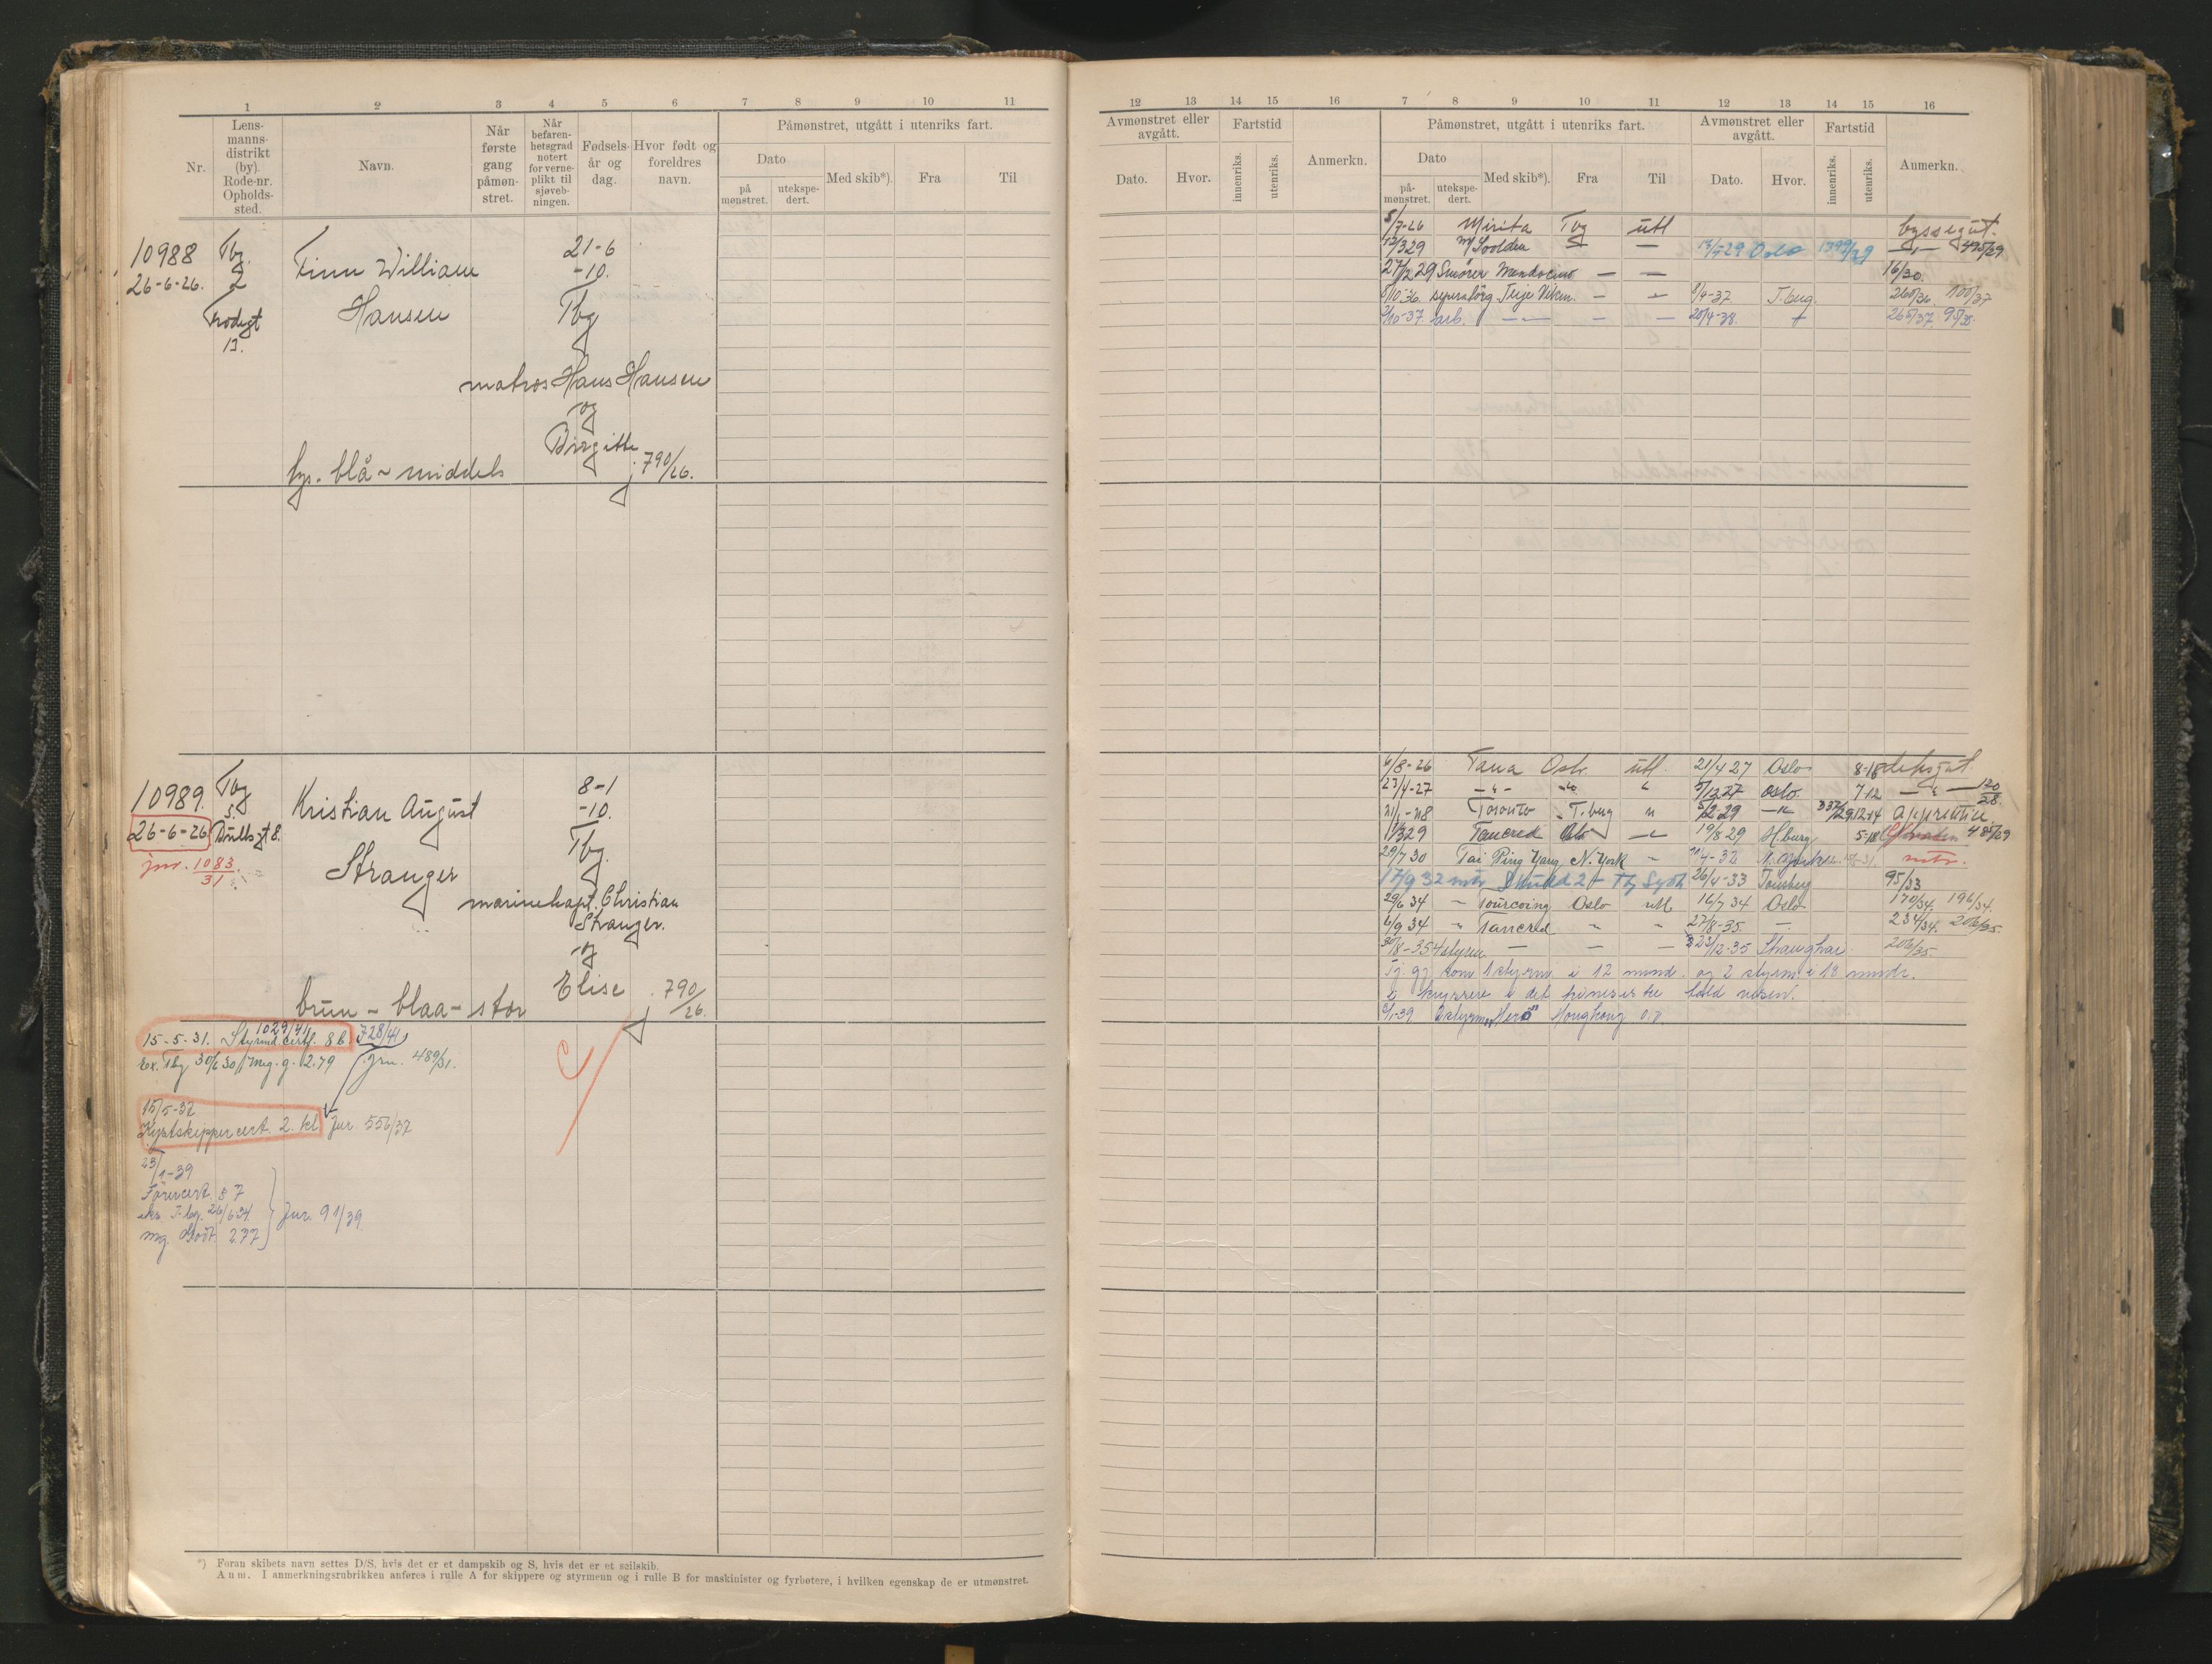 1 2 3 4 5 6 7 8 9 10 11
Nr.
Lens-
manns-
distrikt
(by).
Rode-nr.
Opholds-
sted.
Navn.
Når
første
gang
påmøn-
stret.
Når
befaren-
hetsgrad
notert
for verne-
plikt til
sjøveb-
ningen.
Fødsels-
år og
dag.
Hvor født og
foreldres
navn.
Påmønstret, utgått i utenriks fart.
Dato
på
mønstret.
utekspe-
dert.
Med skib*).
Fra
Til
10988 Tbg.
26-6-26. 2
13.
Finn William
Hansen
21-6
-10.
Tbg
matros Hans Hansen
og
Birgitte
790/26.
lys. blå - middels
10989. Tbg
5.
26-6-26 Bullsgt 8.
jnr. 1083/31
Kristian August
Stranger
8-1
-10.
Tbg.
marinekapt. Christian
Stranger.
og
Elise 790/26.
brun - blaa - stor
1029/41
15-5-31. Styrmd. certf. 86 728/41
Ex. Tbg 30/6 30 / Meg. g. 2.79 jrn. 489/31.
15/5-37
Kystskipper cert. 2. kl Jnr. 556/37
23/1-39
Førercert. 57
eks. T.bg. 26/6 34
mg. Godt 2.77
Jnr. 91/39
*) Foran skibets navn settes D/S, hvis det er et dampskib og S, hvis det er et seilskib.
Anm. I anmerkningsrubrikken anføres i rulle A for skippere og styrmenn og i rulle B for maskinister og fyrbøtere, i hvilken egenskap de er utmønstret.
12 13 14 15 16 7 8 9 10 11 12 13 14 15 16
Avmønstret eller
avgått.
Dato.
Hvor.
Fartstid
innenriks.
utenriks.
Anmerkn.
Påmønstret, utgått i utenriks fart.
Dato
på-
mønstret.
utekspe-
dert.
Med skib*).
Fra
Til
Avmønstret eller
avgått.
Dato.
Hvor.
Fartstid
innenriks.
utenriks.
Anmerkn.
5/7-26 Mirita Tbg utl byssegut.
12/3 29 — — Oslo 1399/29 — 475/29
27/2 29 Smører Mendocino — — 16/30.
8/10-36. Terje Viken. — — 8/9-37 T.bug. 260/36. 100/37
9/10-37. arb. — — — 20/4-38. 265/37. 95/38.
6/8-26 Tana Osl. utl. 21/4 27 Oslo 8-18 deksgut
23/4-27 — " — " " 5/12 27 Oslo. 7-12 — " — 120/28.
Toronto T.berg " 5/2 29 — " — 337/29 12-14 Apprentice.
11/3 29 Tancred — 19/8 29 Hburg 5-18 485/29
29/7 30 Tai Ping Yang N. York — mtr.
17/9 32 mtr Skudd 2 - Tbg Sydh 26/4-33 Tønsberg 95/33
29/6 34 — Tourcoing Oslo utl 16/7 34 Oslo 170/34. 196/34.
6/9 34 " Tancred " " 27/8-35. — 234/34. 206/35.
30/8-35 4 styrm. — — — 23/12-35 Shanghai. 206/35.
Tj. gj. som 1 styrm. i 12 mndr. og 2 styrm. i 18 mndr.
i kryssere i det kinesiske toldvesen.
6/1-39 2 styrm. "Herø" Hongkong